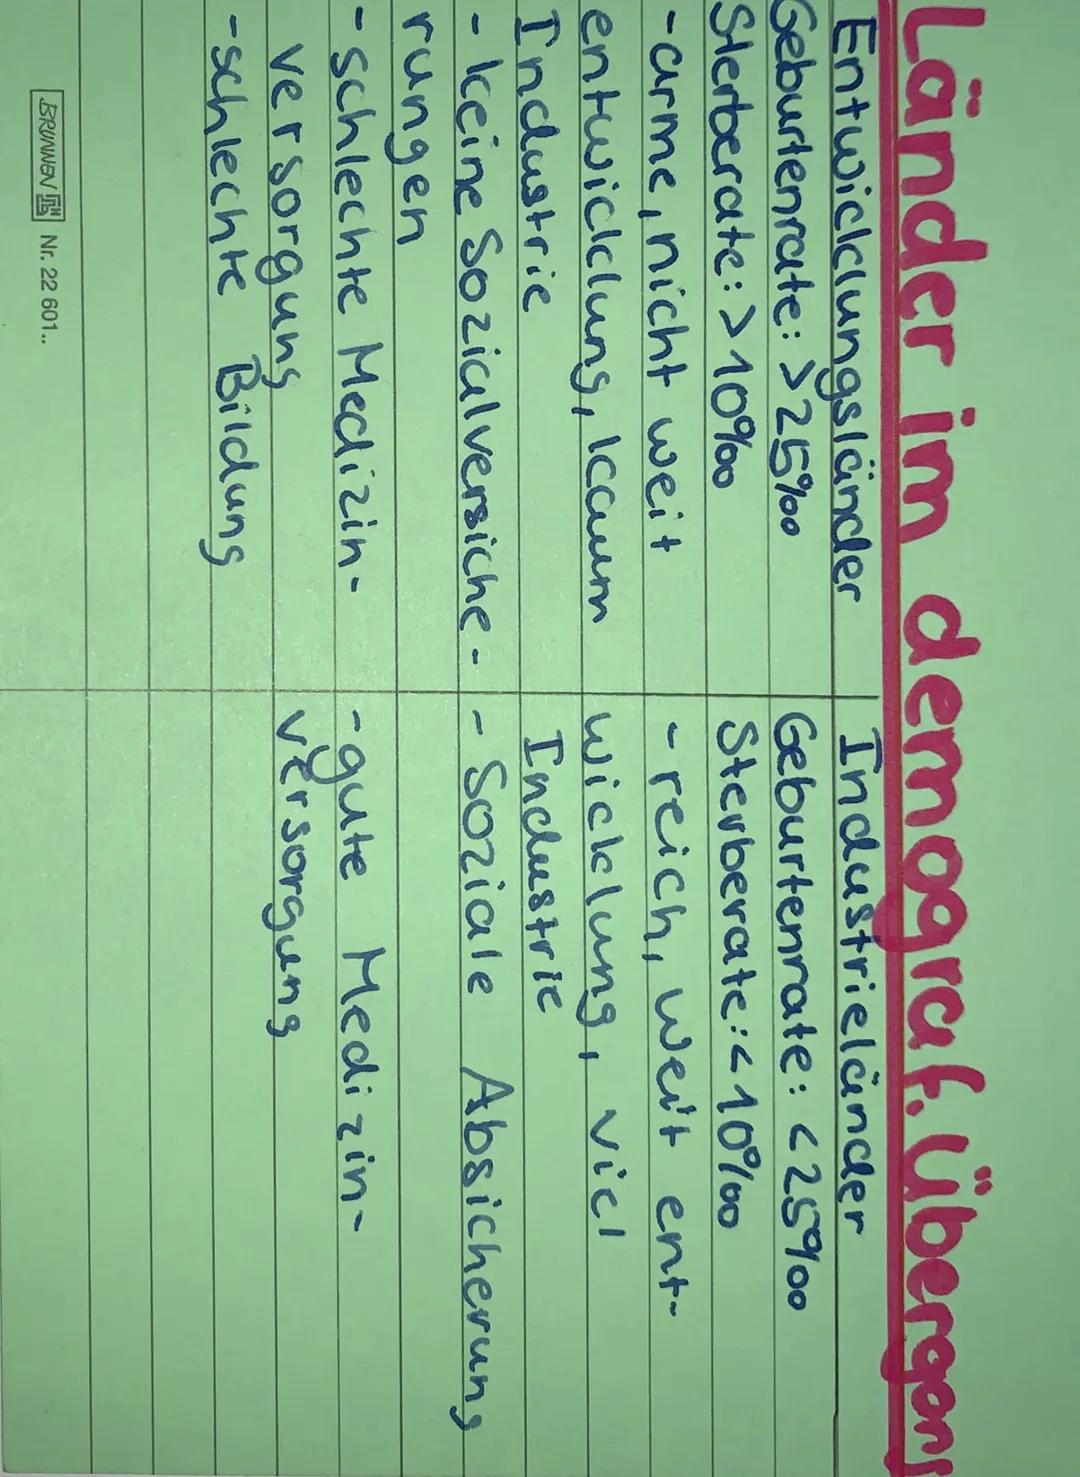 Länder im demograf. Übergang
Entwicklungsländer
Geburtenrate: >25‰
Sterberate: >10‰
-arme, nicht weit
entwicklung, kaum
Industrie
- keine Sozialversiche-
rungen
- schlechte Medizin-
versorgung
-schlechte Bildung
Industrieländer
Geburtenrate: <25‰
Sterberate: <10‰
- reich, weit ent-
wicklung, viel
Industrie
- Soziale Absicherung
-gute Medizin-
versorgung
BRUNNEN Nr. 22 601..